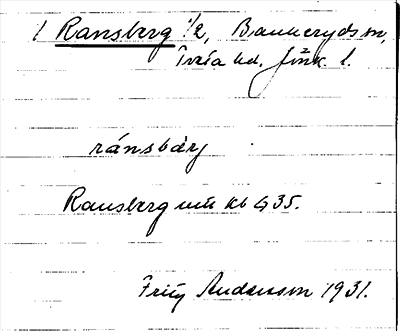 1 Ransberg 1/2, Bankeryds sn,
Tveta hd, Jönk. l.
ránsbàrj
Ransberg uu kb G 35.
Fritz Andersson 1931.